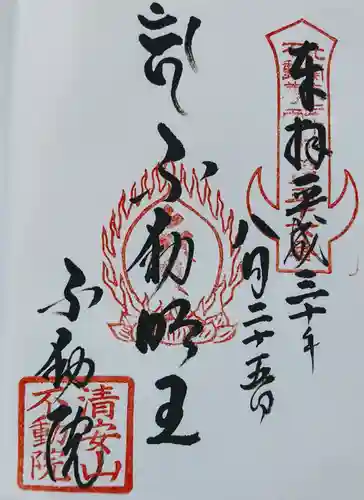 奉拝 平成三十年
八月二十五日
不動明王
不動院
清安山
不動院